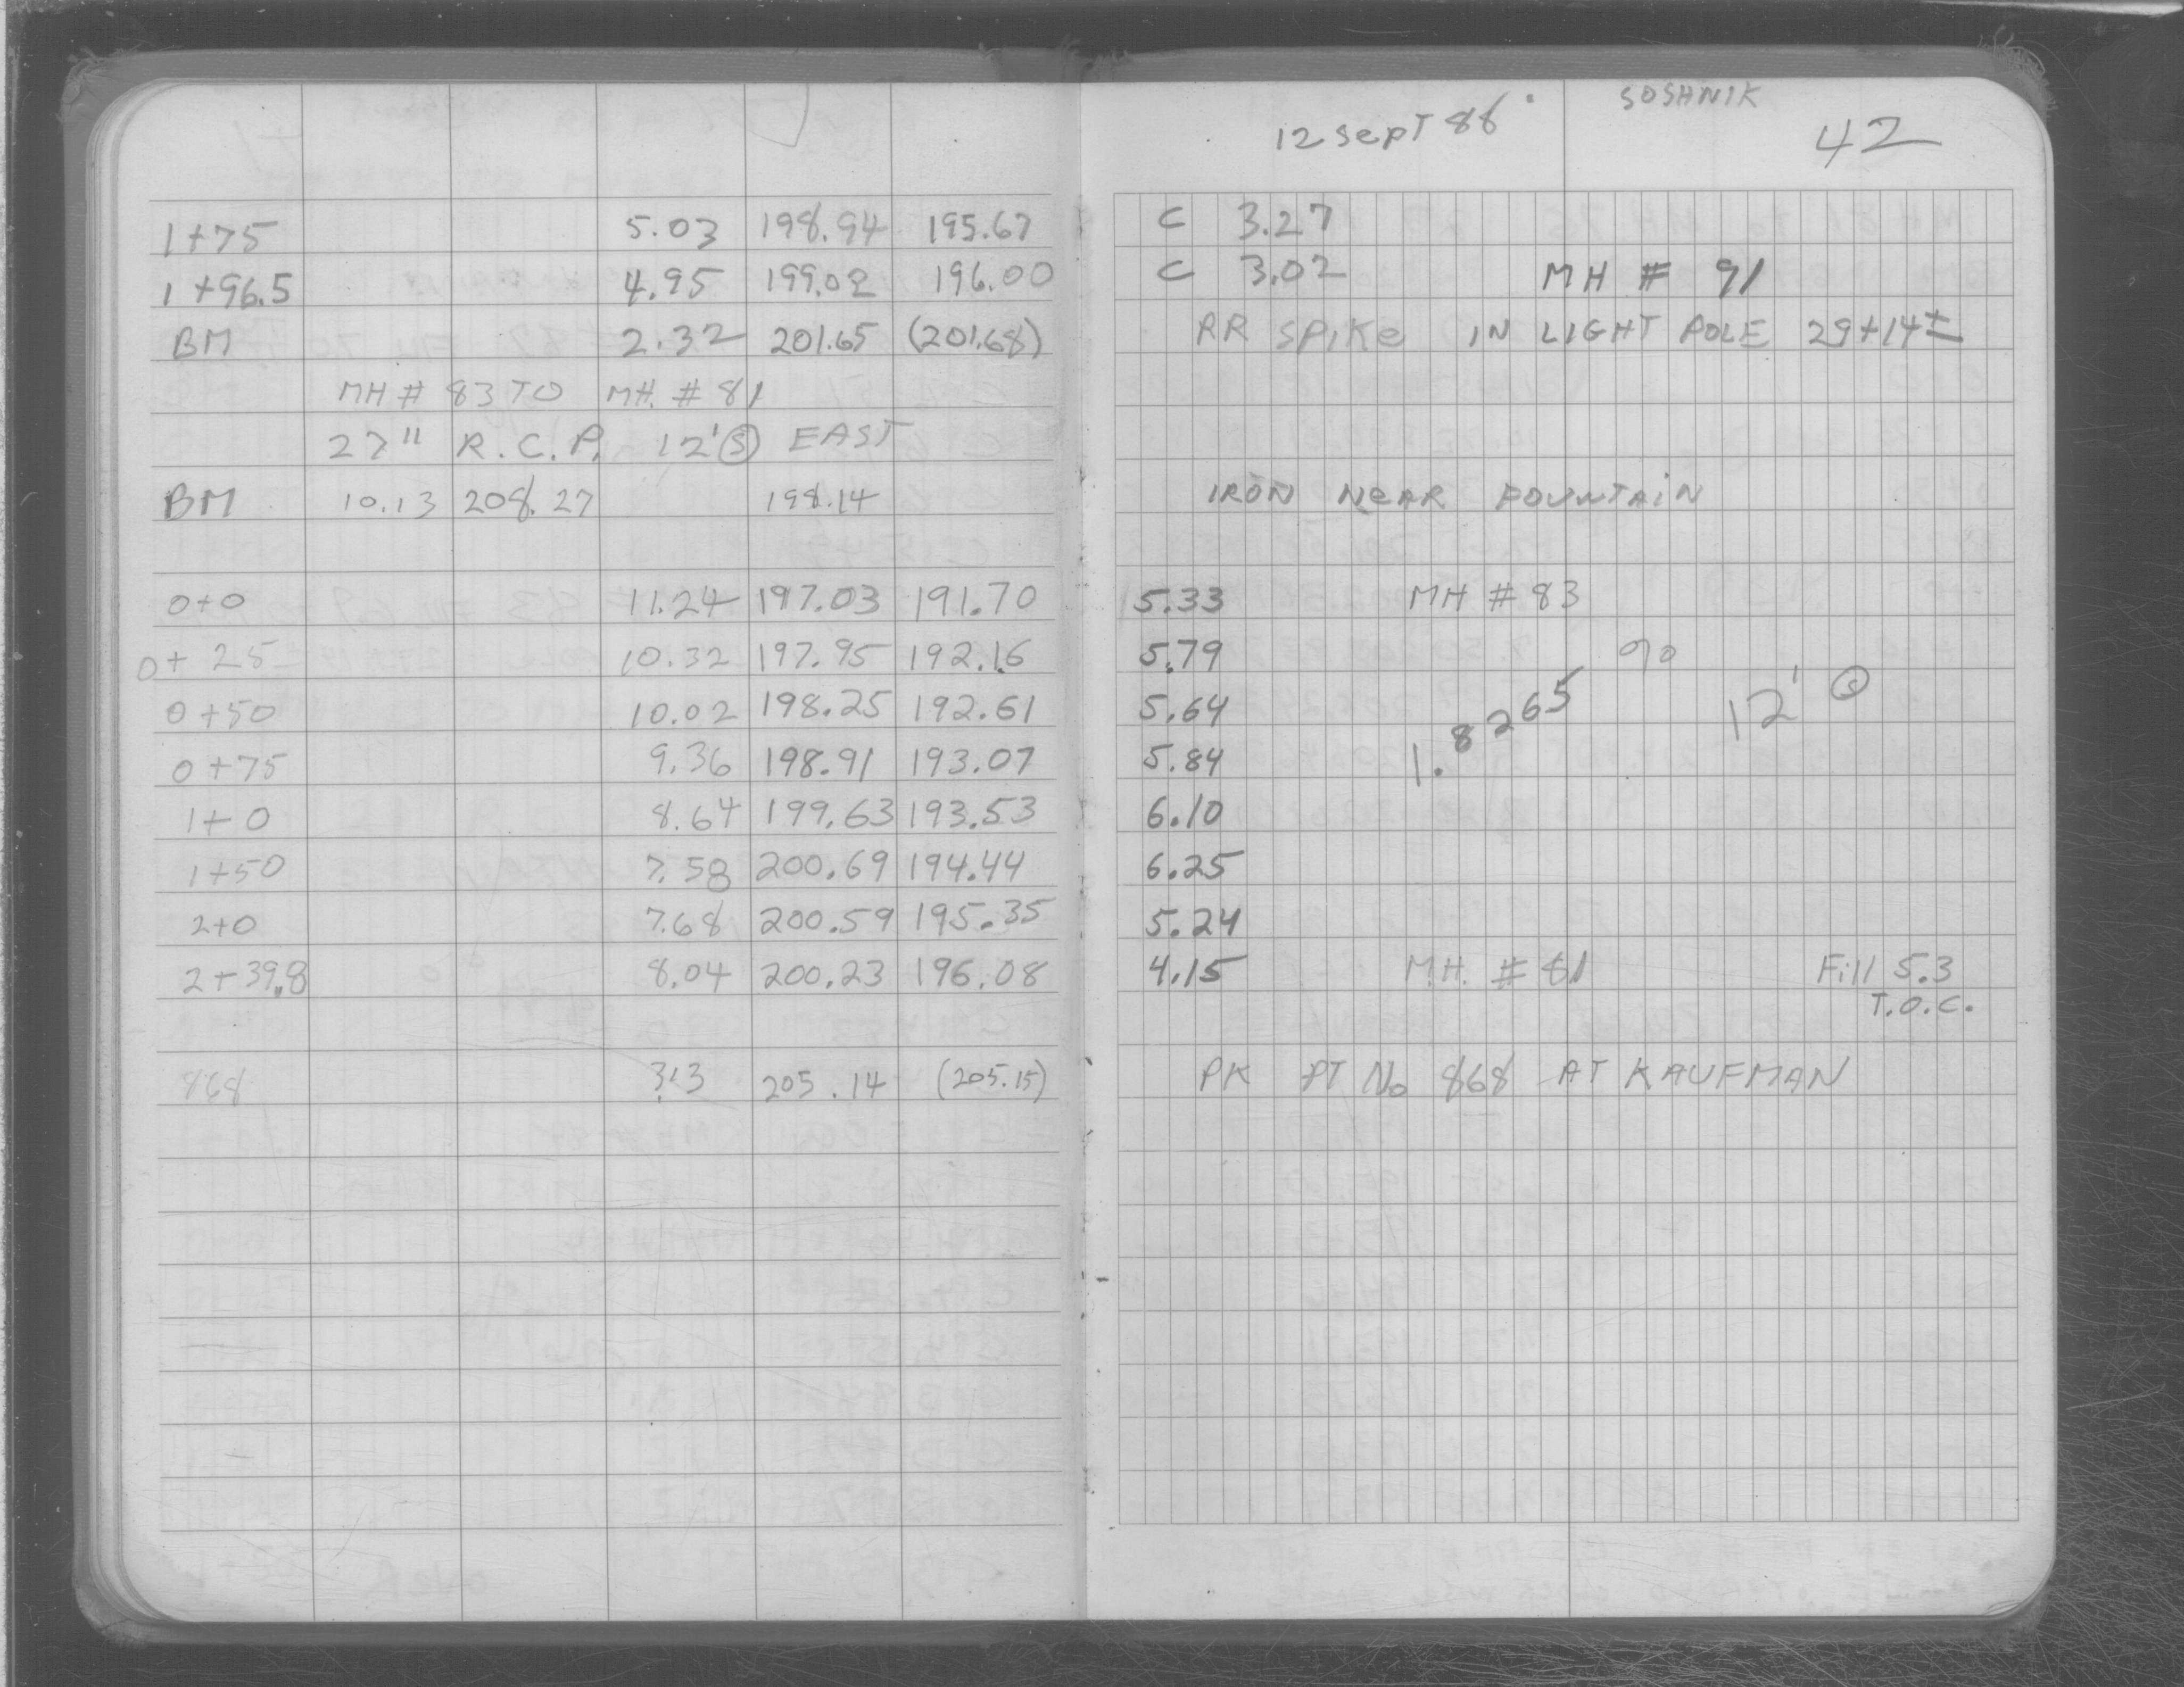 12 Sept 88 SOSHNIK 42
1+75 5.03 198.94 195.67 C 3.27
1+96.5 4.95 199.02 196.00 C 3.02 MH # 91
BM 2.32 201.65 (201.68) RR SPIKe IN LIGHT POLE 29+14±
MH # 83 TO MH. # 81
27" R.C.P. 12' Ⓢ EAST
BM 10.13 208.27 198.14 IRON NeAR FOUNTAIN
0+0 11.24 197.03 191.70 5.33 MH # 83
0+25 10.32 197.95 192.16 5.79
0+50 10.02 198.25 192.61 5.64 1.8265 % 12' Ⓢ
0+75 9.36 198.91 193.07 5.84
1+0 8.64 199.63 193.53 6.10
1+50 7.58 200.69 194.44 6.25
2+0 7.68 200.59 195.35 5.24
2+39.8 8.04 200.23 196.08 4.15 M.H. # 81 Fill 5.3
T.O.C.
868 3.13 205.14 (205.15) PK PT No 868 AT KAUFMAN